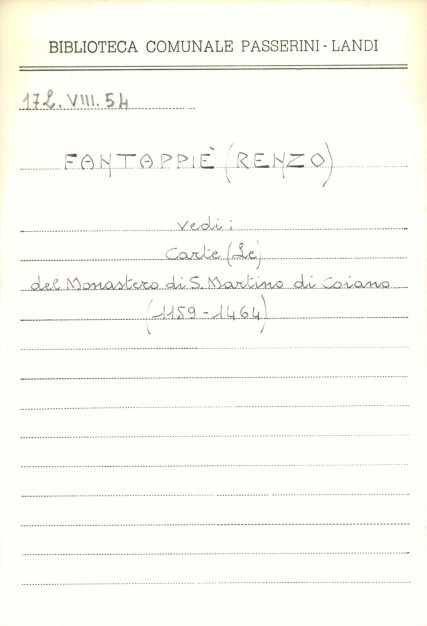 BIBLIOTECA COMUNALE PASSERINI - LANDI
172. VIII. 54
FANTAPPIÈ (RENZO)
vedi:
Carte (Le)
del Monastero di S. Martino di Coiano
(1159 - 1464)